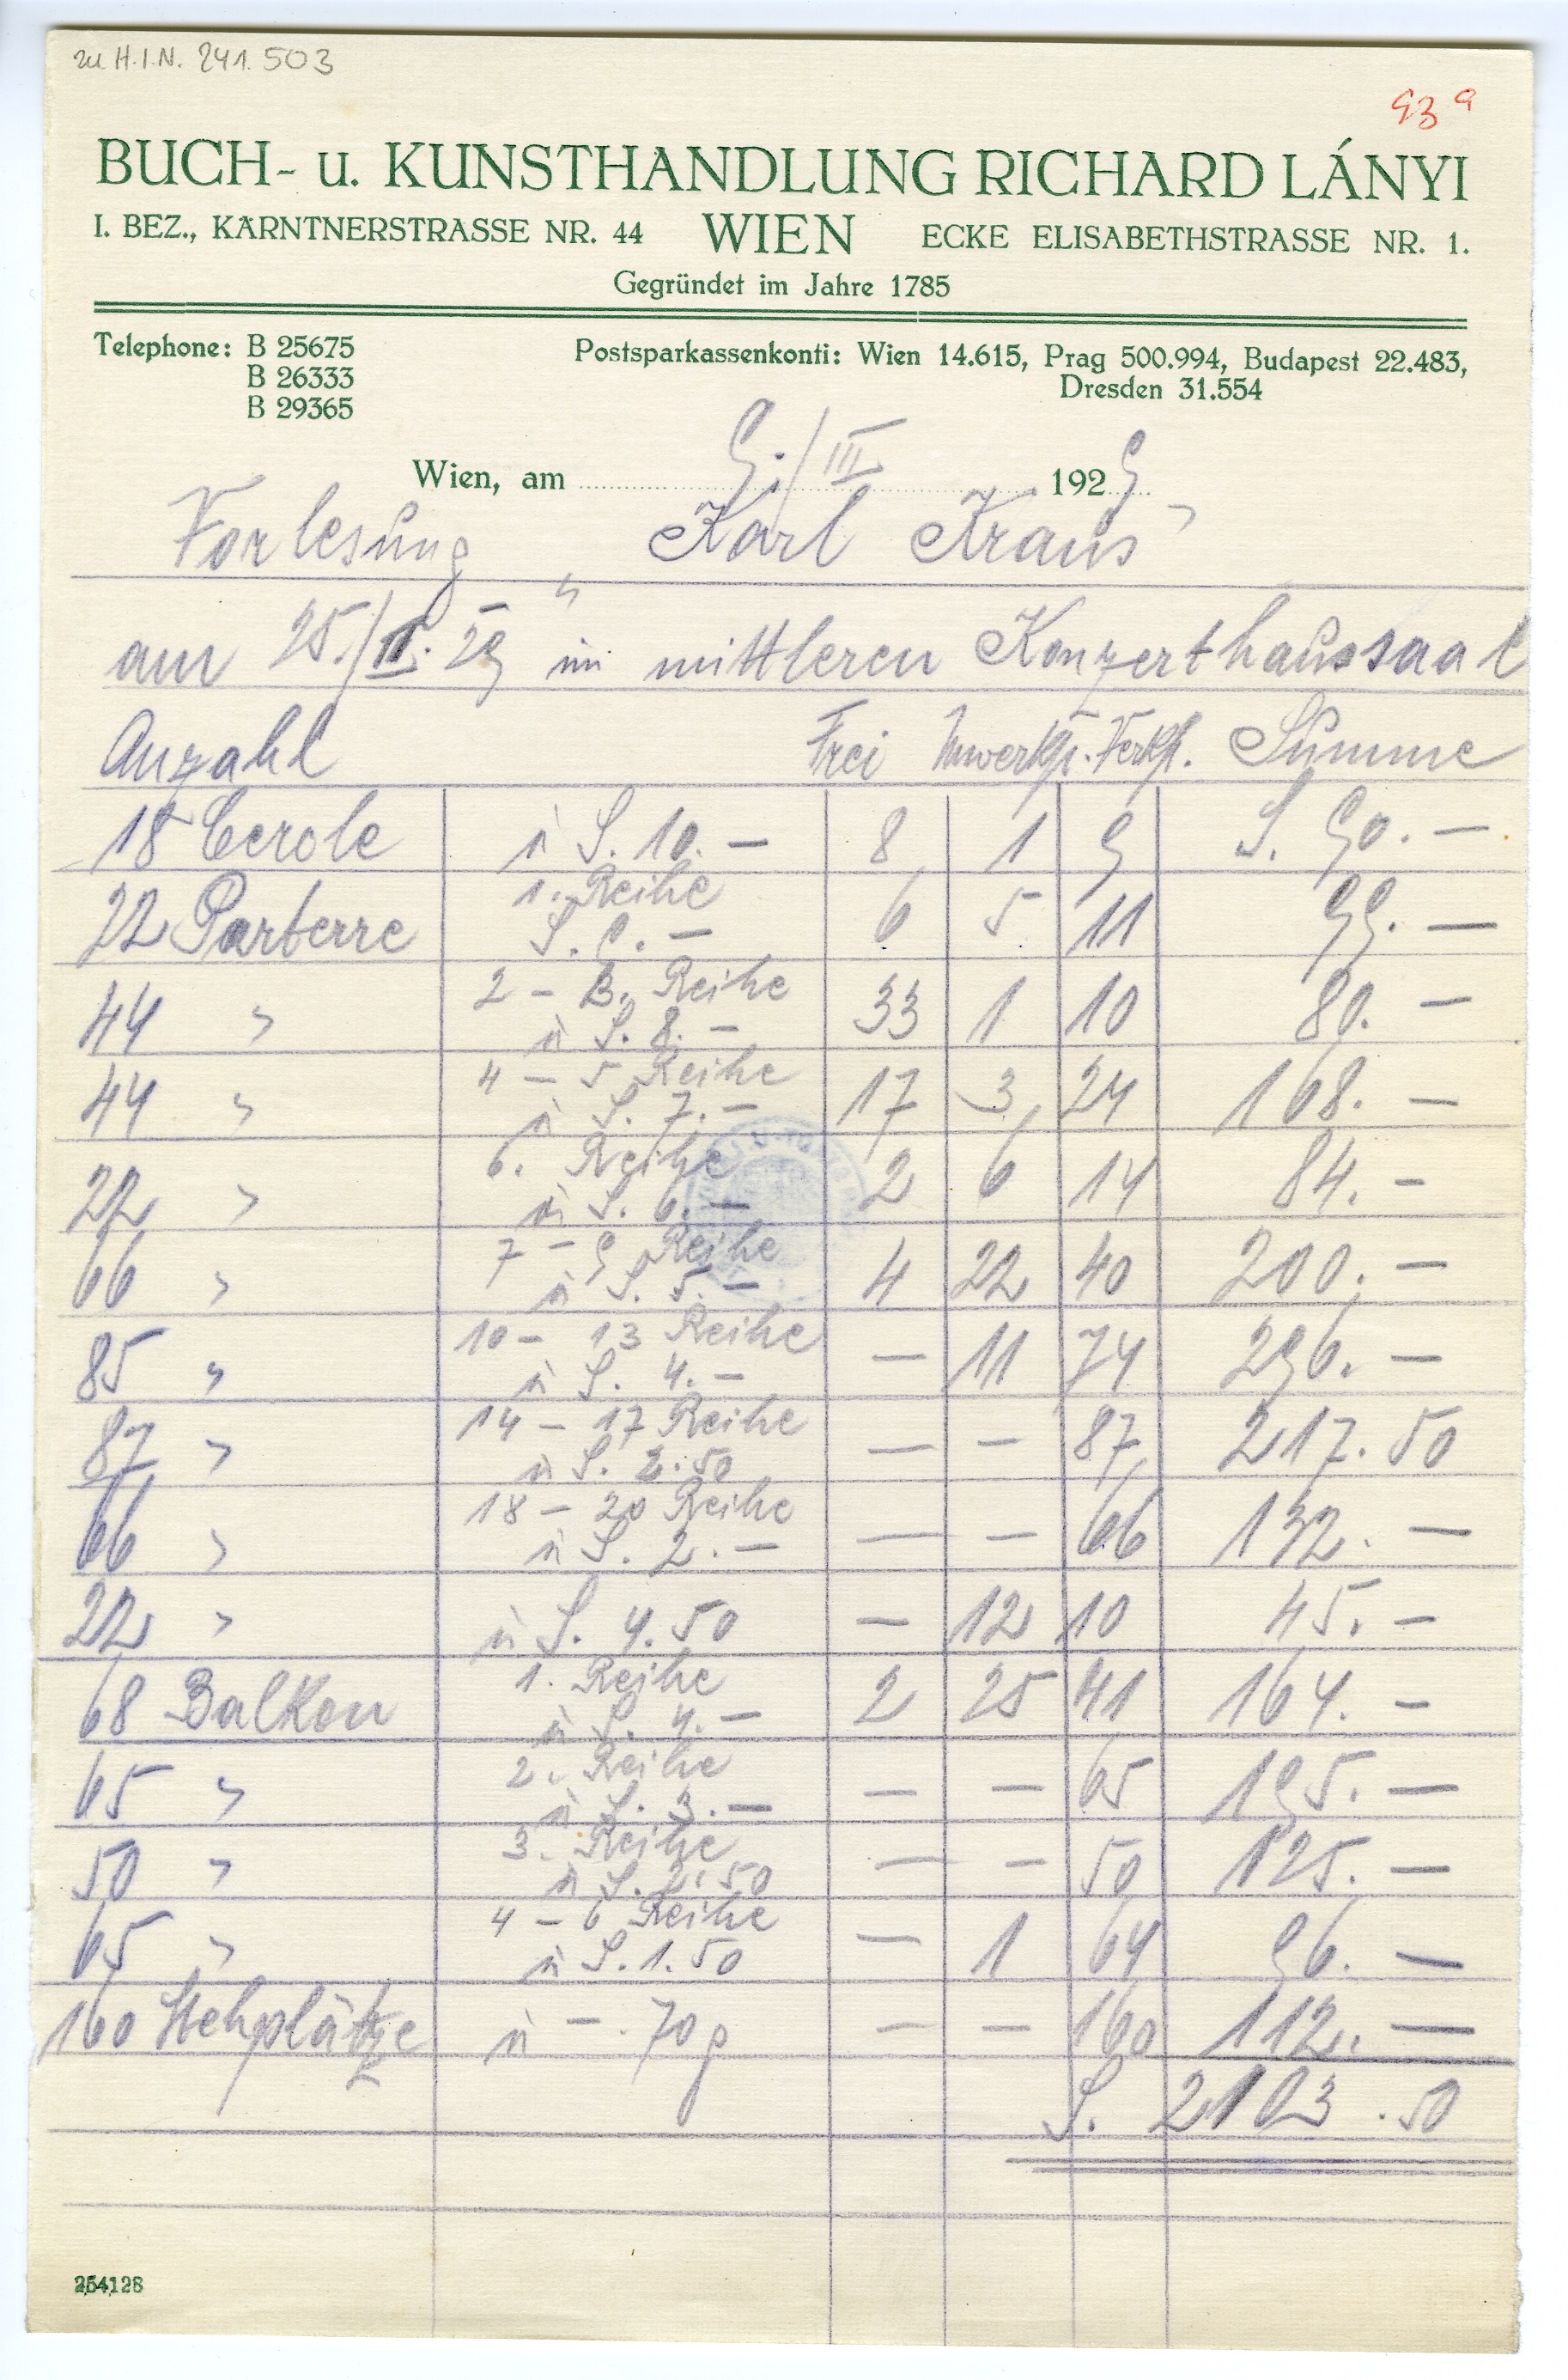 zu H.I.N. 241.503
93 a
BUCH- u. KUNSTHANDLUNG RICHARD LÁNYI
I. BEZ., KÄRNTNERSTRASSE NR. 44 WIEN ECKE ELISABETHSTRASSE NR. 1.
Gegründet im Jahre 1785
Telephone: B 25675
B 26333
B 29365
Postsparkassenkonti: Wien 14.615, Prag 500.994, Budapest 22.483,
Dresden 31.554
Wien, am 9./III 1929
Vorlesung „Karl Kraus“
am 25./II. 29 im mittleren Konzerthaussaal
Anzahl Frei Unverkft. Verkft. Summe
18 Cercle à S. 10.— 8 1 9 S. 90.—
22 Parterre 1. Reihe S. 9.— 6 5 11 99.—
44 " 2 – 3. Reihe à S. 8.— 33 1 10 80.—
44 " 4 – 5 Reihe à S. 7.— 17 3 24 168.—
22 " 6. Reihe à S. 6.— 2 6 14 84.—
66 " 7 – 9 Reihe à S. 5.— 4 22 40 200.—
85 " 10 – 13 Reihe à S. 4.— — 11 74 296.—
87 " 14 – 17 Reihe à S. 2.50 — — 87 217.50
66 " 18 – 20 Reihe à S. 2.— — — 66 132.—
22 " à S. 4.50 — 12 10 45.—
68 Balkon 1. Reihe à S. 4.— 2 25 41 164.—
65 " 2. Reihe à S. 3.— — — 65 195.—
50 " 3. Reihe à S. 2.50 — — 50 125.—
65 " 4 – 6 Reihe à S. 1.50 — 1 64 96.—
160 Stehplätze à –.70 g — — 160 112.—
S. 2103.50
254128